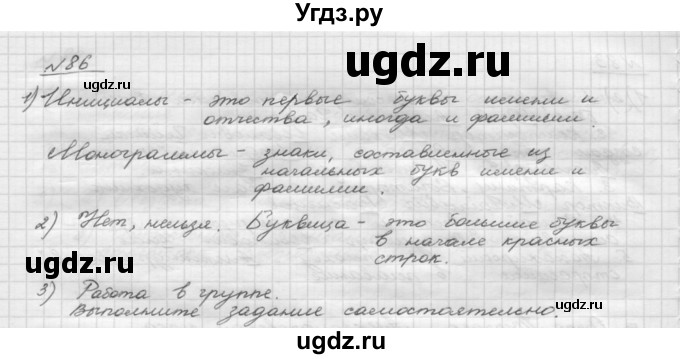 Угдз.ру
№86
ugdz.ru
ugdz.ru
ugdz.ru
1) Инициалы - это первые буквы имени и
отчества, иногда и фамилии.
Монограммы - знаки, составленные из
начальных букв имени и
фамилии.
ugdz.ru
ugdz.ru
2) Нет, нельзя. Буквица - это большие буквы
в начале красных
строк.
ugdz.ru
ugdz.ru
3) Работа в группе.
Выполните задание самостоятельно.
ugdz.ru
ugdz.ru